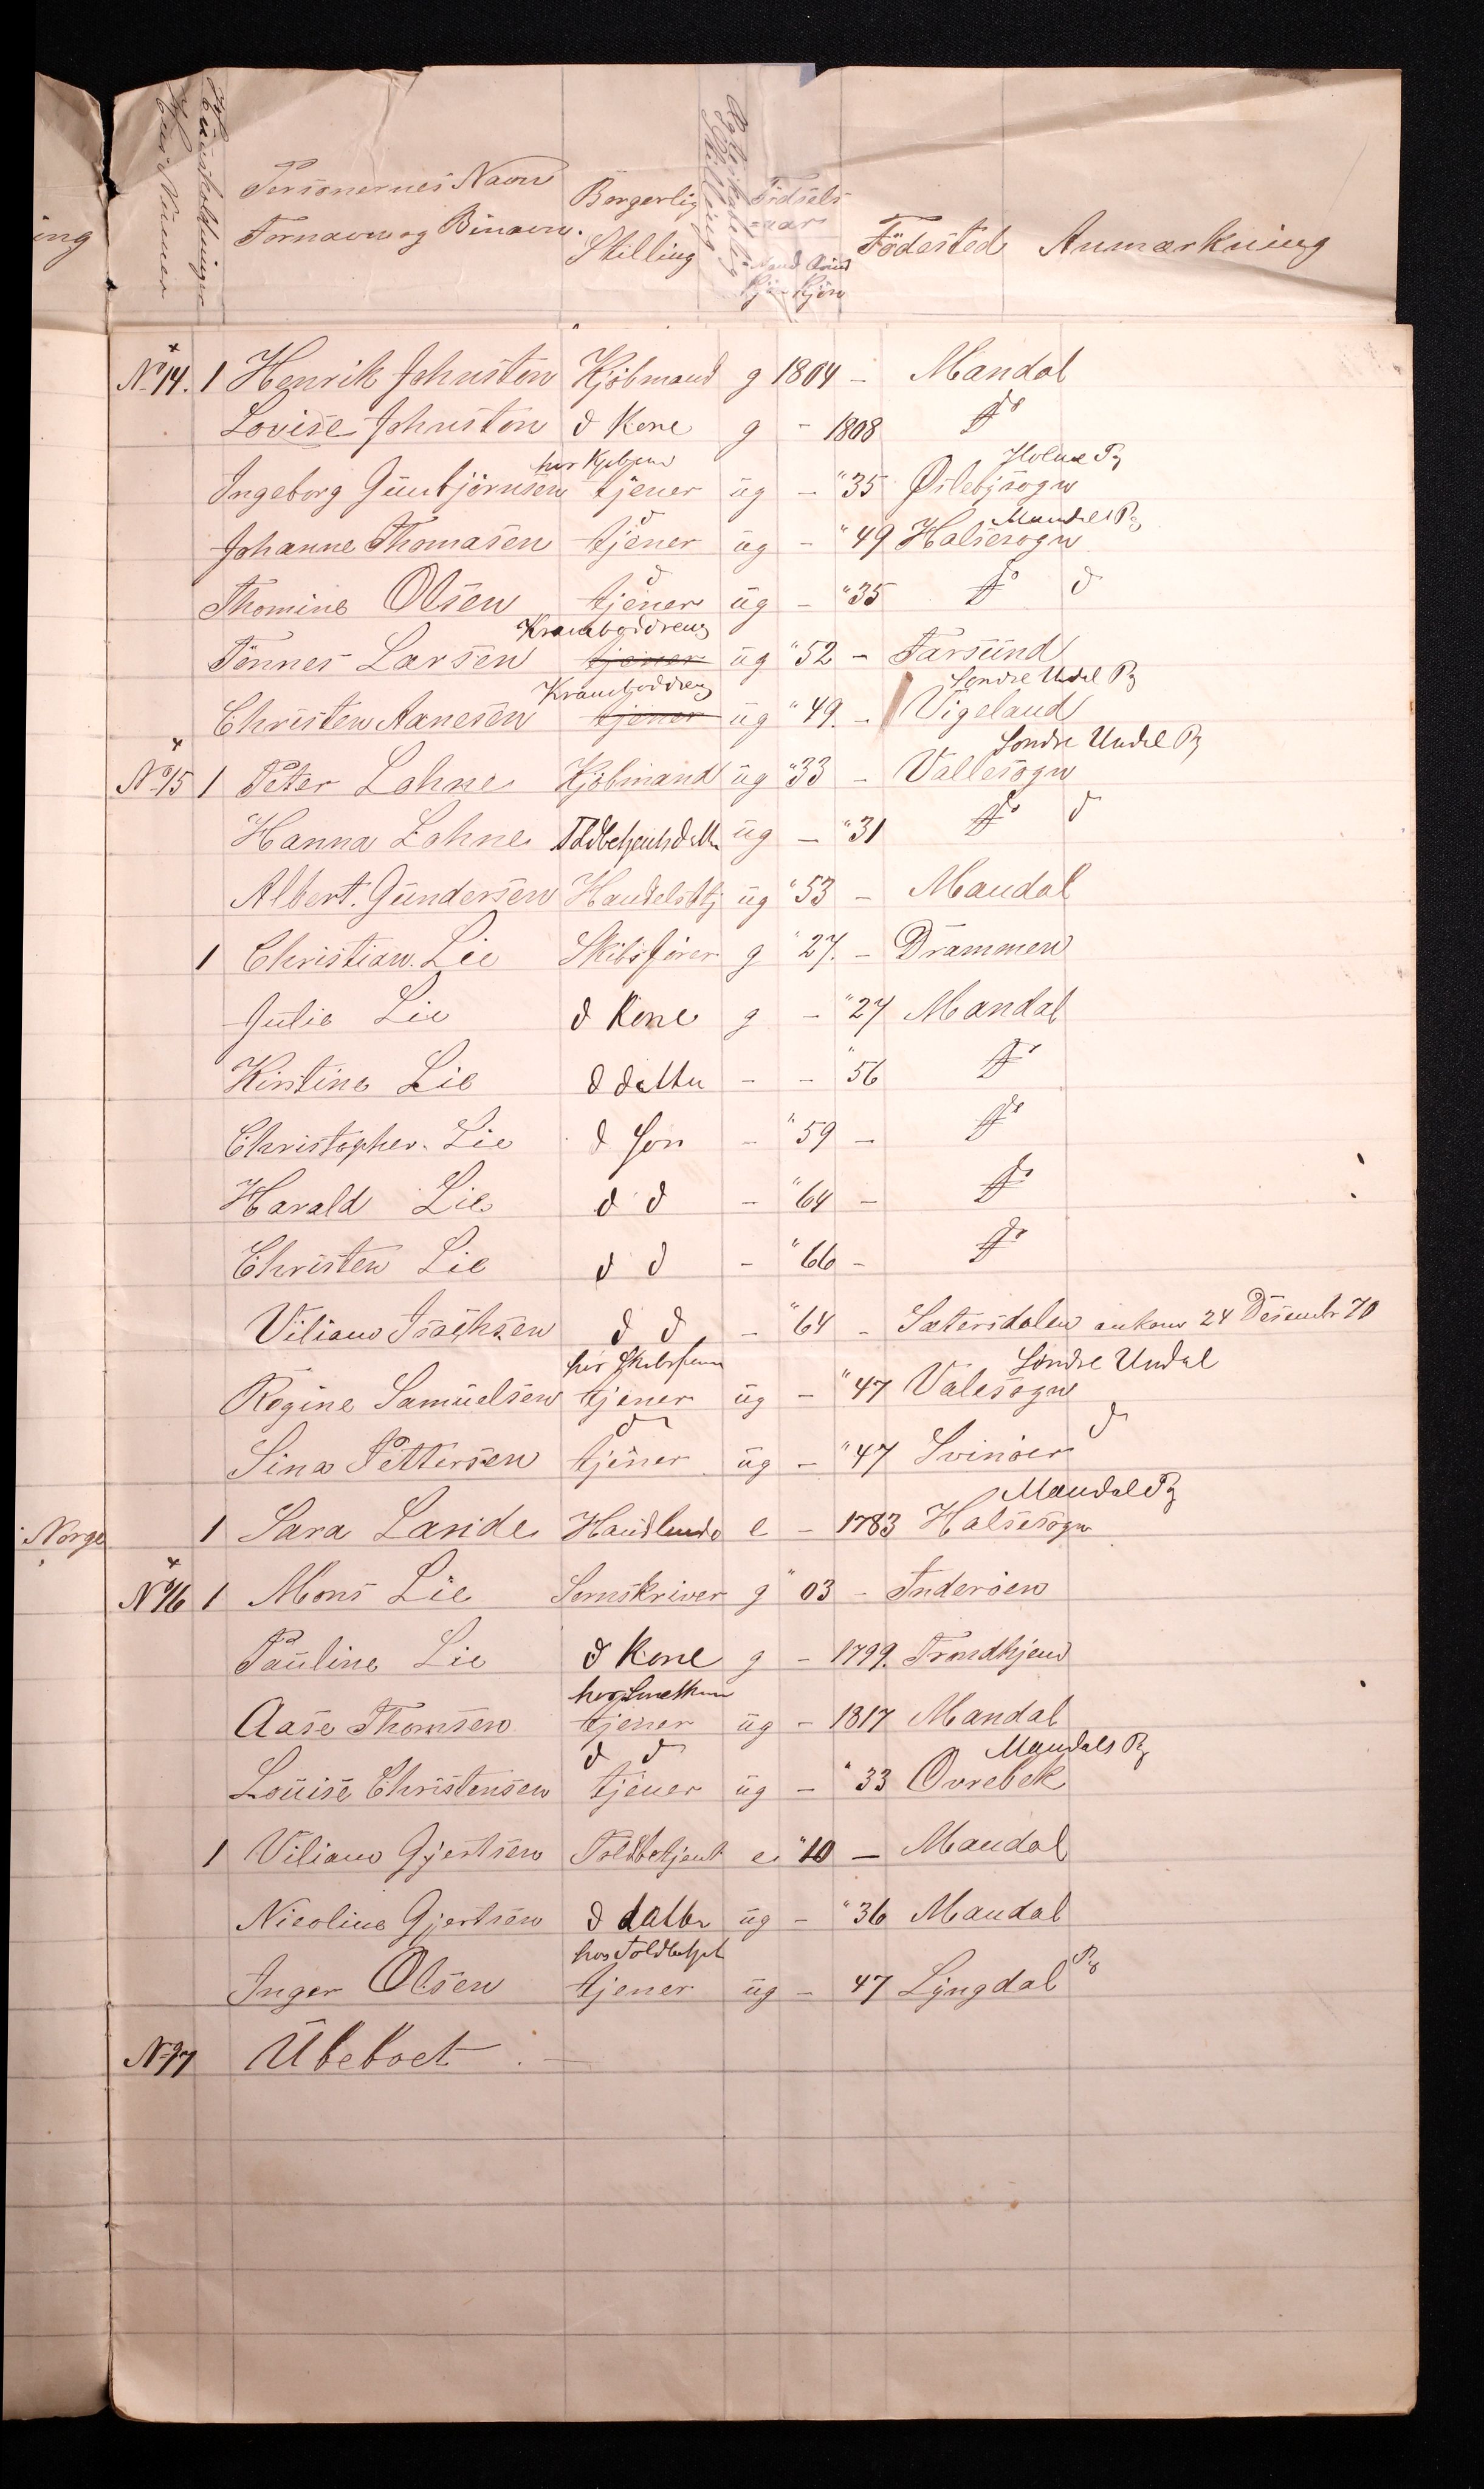 ing
Huusholdninger
Personernes Navn
Fornavn og Binavn.
Borgerlig
Stilling
Födsels
aar
Mand Qvind
Kjön Kjön
Födested Anmærkning
No 14. 1 Henrik Johnston Kjöbmand g 1804 - Mandal
Lovise Johnston d Kone g - 1808 do
Holme Pg
Ingeborg Gunbjörnsen tjener ug - "35 Øslebysogn
Mandals Pg
Johanne Thomasen d tjener ug - "49 Halsesogn
Thomine Olsen d tjener ug - "35 do d
Kramboddreng
Tönnes Larsen tjener ug "52 - Farsund
Kramboddreng Söndre Undal Pg
Christen Aanesen tjener ug "49. - Vigeland
Söndre Undal Pg
No 15 1 Peter Lohne Kjöbmand ug "33 - Vallesogn
Hanna Lohne ug - "31 do d
Albert. Gundersen Handelsbtj ug "53 - Mandal
1 Christian. Lie Skibsförer g "27. - Drammen
Julie Lie d Kone g - "27 Mandal
Kirstine Lie d datter - - "56 do
Christopher. Lie d Sön - "59 - do
Harald Lie d d - "64 - do
Christen Lie d d - "66 - do
Viliam Isachsen d d - "64 - Sætersdalen ankom 24 Desembr 70
Söndre Undal
Regine Samuelsen tjener ug - "47 Valesogn
Sina Pettersen d tjener ug - "47 Svinöer d
Mandal Pg
Norge
1 Sara Lande Handlende e - 1783 Halsesogn
No 16 1 Mons Lie Sornskriver g "03 - Inderöen
Pauline Lie d Kone g - 1799. Trondhjem
Aase Thomsen tjener ug - 1817 Mandal
d d Mandals Pg
Louise Christensen tjener ug - "33 Ovrebek
1 Viliam Gjertsen Toldbetjent e "10 - Mandal
Nicoline Gjertsen d datter ug - "36 Mandal
hos Toldbetjt
Inger Olsen tjener ug - 47 Lyngdal Pg
No 17 Ubeboet -